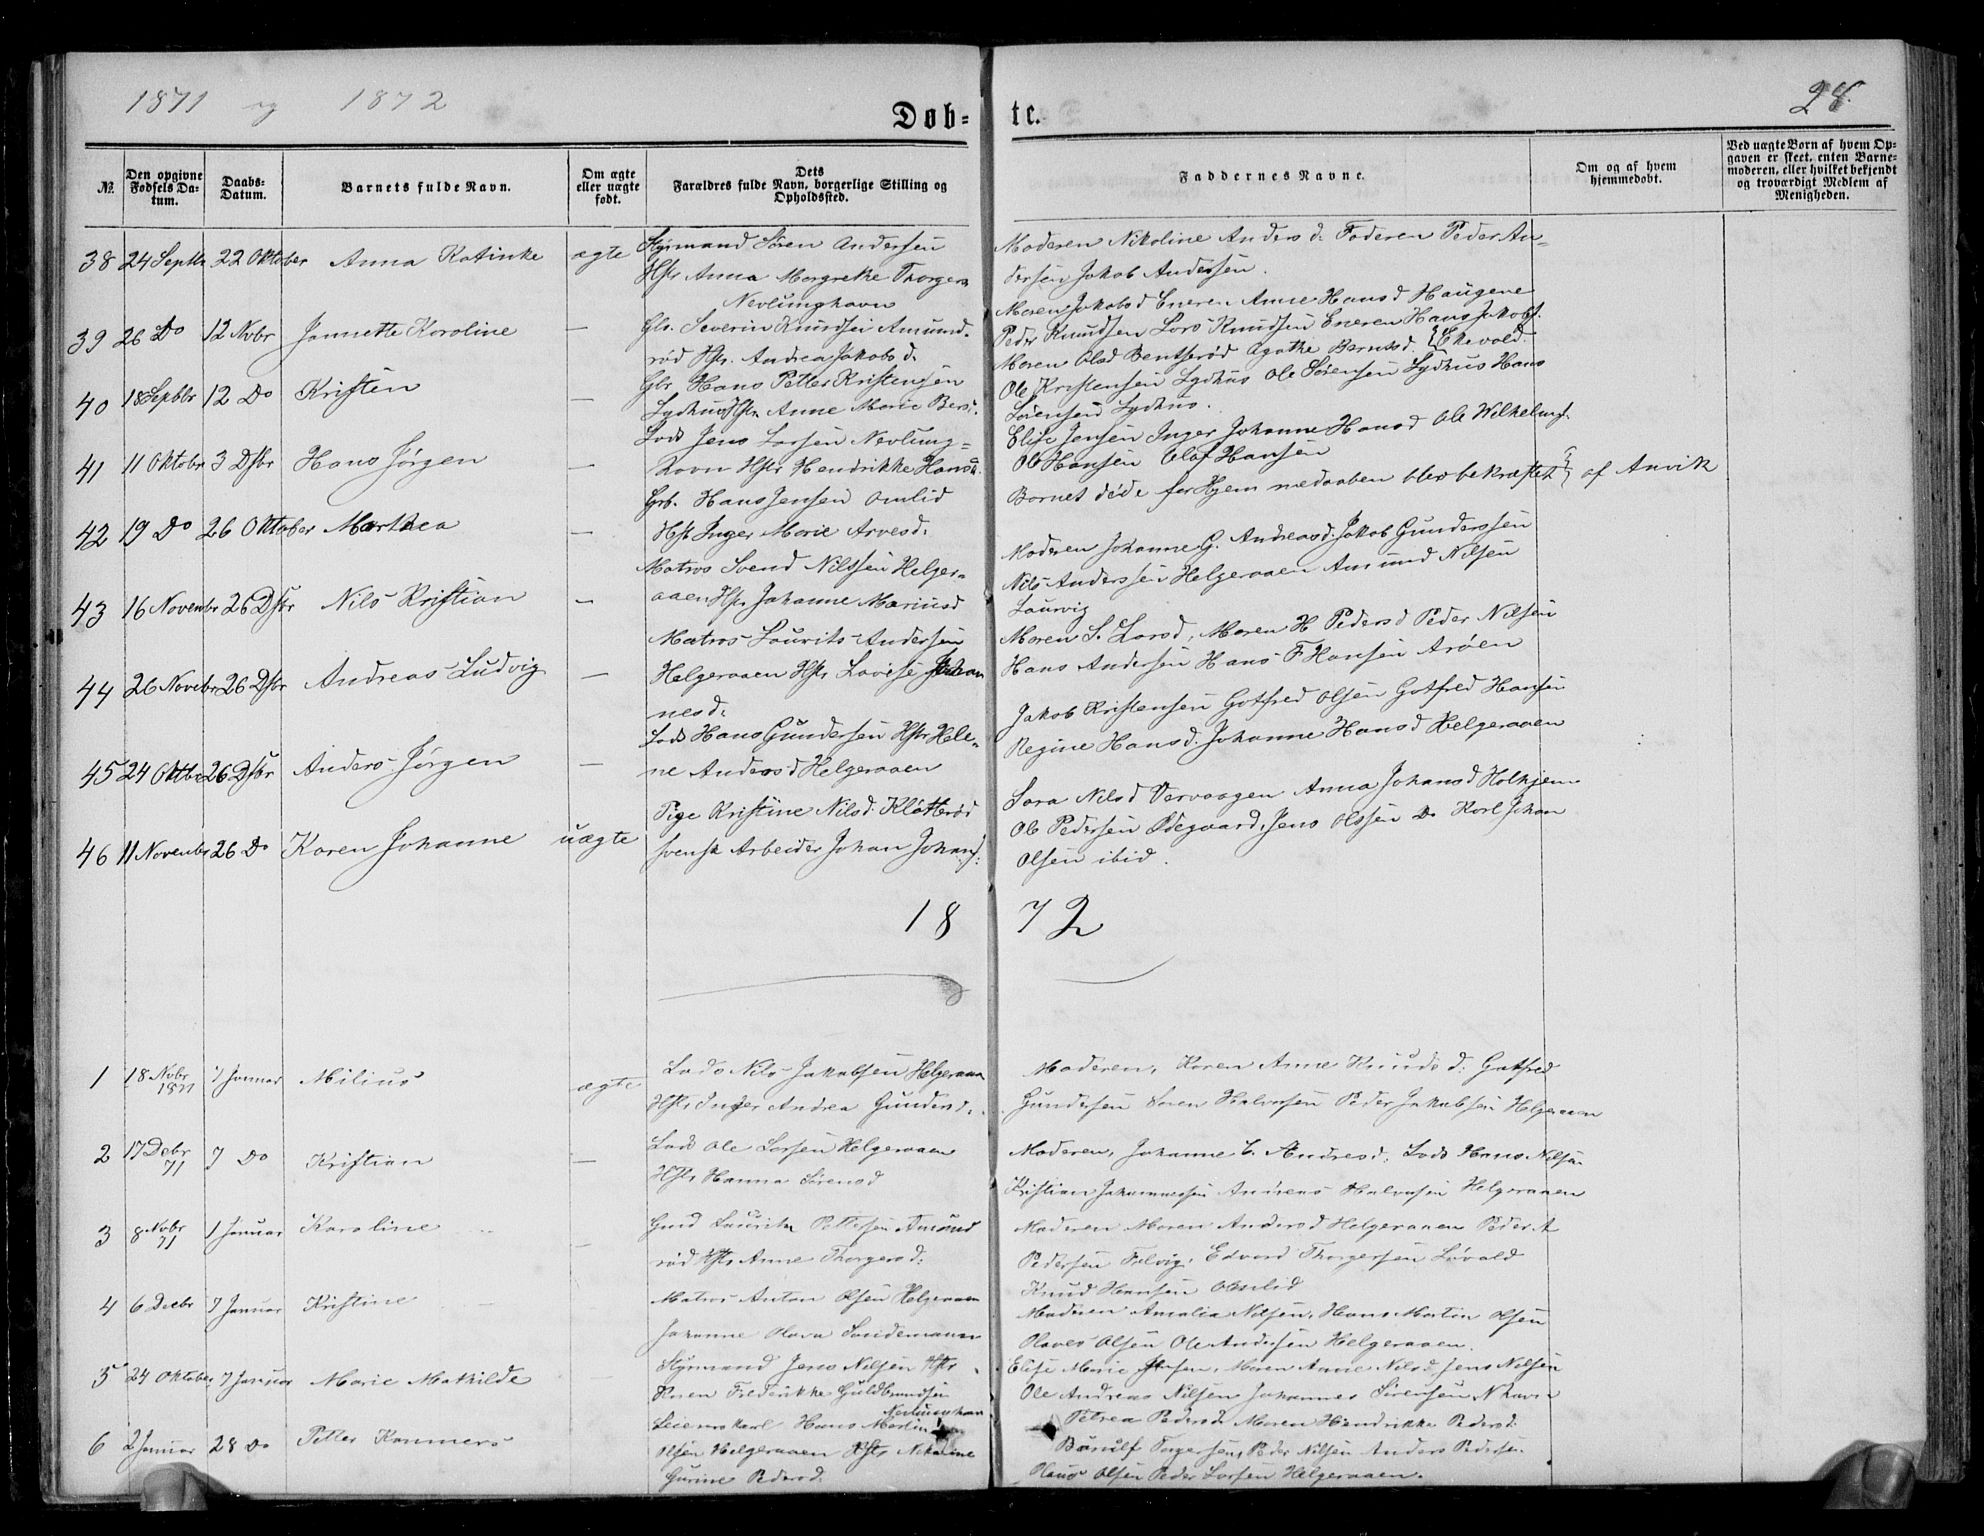 1871 og 1872
28.
Døb-te.
№.
Den opgivne Fødsels Da-tum.
Daabs-Datum.
Barnets fulde Navn.
Om ægte eller uægte født.
Dets Forældres fulde Navn, borgerlige Stilling og Opholdssted.
Faddernes Navne.
Om og af hvem hjemmedøbt.
Ved uægte Børn af hvem Op-gaven er skeet, enten Barne-moderen, eller hvilket bekjendt og troværdigt Medlem af Menigheden.
38 24 Septbr 22 Oktober Anna Katinke ægte
Styrmand Søren Andersen
Hstr Anna Margrethe Thorgers
Nevlunghavn
Moderen Nikoline Anders d: Faderen Peder An-
dersen Jakob Andersen.
39 26 Do 12 Novbr Jannette Karoline —
Gbr. Severin Knudsen Amund-
rød Hstr. Andrea Jakobs d.
Maren Jakobsd Eneren Anne Hansd Haugene
Peder Knudsen Lars Knudsen Eneren Hans Jakobs.
40 18 Septbr 12 Do Kristen —
Gbr Hans Petter Kristensen
Lydhus Hstr Anne Marie Bers:
Maren Olsd Bentserød Agathe Berntsd. Ekevold.
Ole Kristensen Lydhus Ole Sørensen Lydhus Hans
Sørensen Lydhus.
41 11 Oktobr 3 Dsbr Hans Jørgen —
Lods Jens Larsen Nevlung-
Havn Hstr Hendrikke Hansd.
Elise Jensen Inger Johanne Hansd Ole Wilhelms.
Ole Hansen Olaf Hansen
42 19 Do 26 Oktober Marthea —
Grb. Hans Jensen Omlid
Hstr Inger Marie Arvesd:
Barnet døde før Hjemmedaaben blev bekræftet af Anvik
43 16 Novenbr 26 Dsbr Nils Kristian —
Matros Svend Nilssen Helger-
aaen Hstr Johanne Mariusd
Moderen Johanne G. Andreasd. Jakob Gunderssen
Nils Anderssen Helgeraaen Amund Nilsen
Laurvig
44 26 Novebr 26 Dsbr Andreas Ludvig —
Matros Laurits Andersen
Helgeraaen Hstr Lovise Johan
nesd:
Maren S. Larsd, Maren H Pedersd Peder Nilsen
Hans Andersen Hans F Hansen Arøen
45 24 Oktbr 26 Dsbr Anders Jørgen —
Lods Hans Gundersen Hstr Hele-
ne Andersd Helgeraaen
Jakob Kristensen Gotfred Olsen Gotfred Hansen
Regine Hansd. Johanne Hansd Helgeraaen
46 11 Novenbr 26 Do Karen Johanne uægte
Pige Kristine Nilsd. Kløtterød
svensk Arbeider Johan Johans:
Sara Nilsd Varvaagen Anna Johansd Holkjem
Ole Pedersen Ødegaard, Jens Olssen Do Karl Johan
Olsen ibid.
18 72
1 18 Novbr 1871 7 Januar Milius ægte
Lods Nils Jakobsen Helgeraaen
Hstr Inger Andrea Gundersd.
Moderen, Karen Anne Knuds d: Gotfred
Gundersen Søren Halvorsen Peder Jakobsen Helgeraaen
2 17 Debr 71 7 Do Kristian —
Lods Ole Larsen Helgeraaen
Hstr Hanna Sørensd
Moderen, Johanne E. Andresd: Lods Hans Nilsen
Kristian Johannessen Andreas Halvorsen Helgeraaen
3 8 Novbr 71 1 Januar Karoline —
Gmd Lauritz Pettersen Amund
rød Hstr Anne Thorgersd:
Moderen Maren Andersd Helgeraaen Peder A
Pedersen Felvig, Edvard Thorgersen Løvald
Knud Hansen Omlid
4 6 Decbr 7 Januar Kristine —
Matros Anton Olsen Helgeraaen
Johanne Olava Sandemann
Moderen Amalia Nilsen, Hans Martin Olsen
Olaves Olsen Ole Andersen Helgeraaen.
5 24 Oktober 7 Januar Marie Mathilde
Styrmand Jens Nilsen Hstr
Karen Frederikke Guldbrandsen
Nevlunghavn
Elise Marie Jensen, Maren Anne Nilsd Jens Nilsen
Ole Andreas Nilsen Johannes Sørensen Nhavn
6 2 Januar 28 Do Petter
Leiermskarl Hans Martin
Olsen Helgeraaen Hstr Nikoline
Gurine Pedersd:
Petrea Pedersd Maren Hendrikke Pedersd.
Torgersen, Peder Nilsen Anders Pedersen
Olaus Olsen Peder Larsen Helgeraaen.